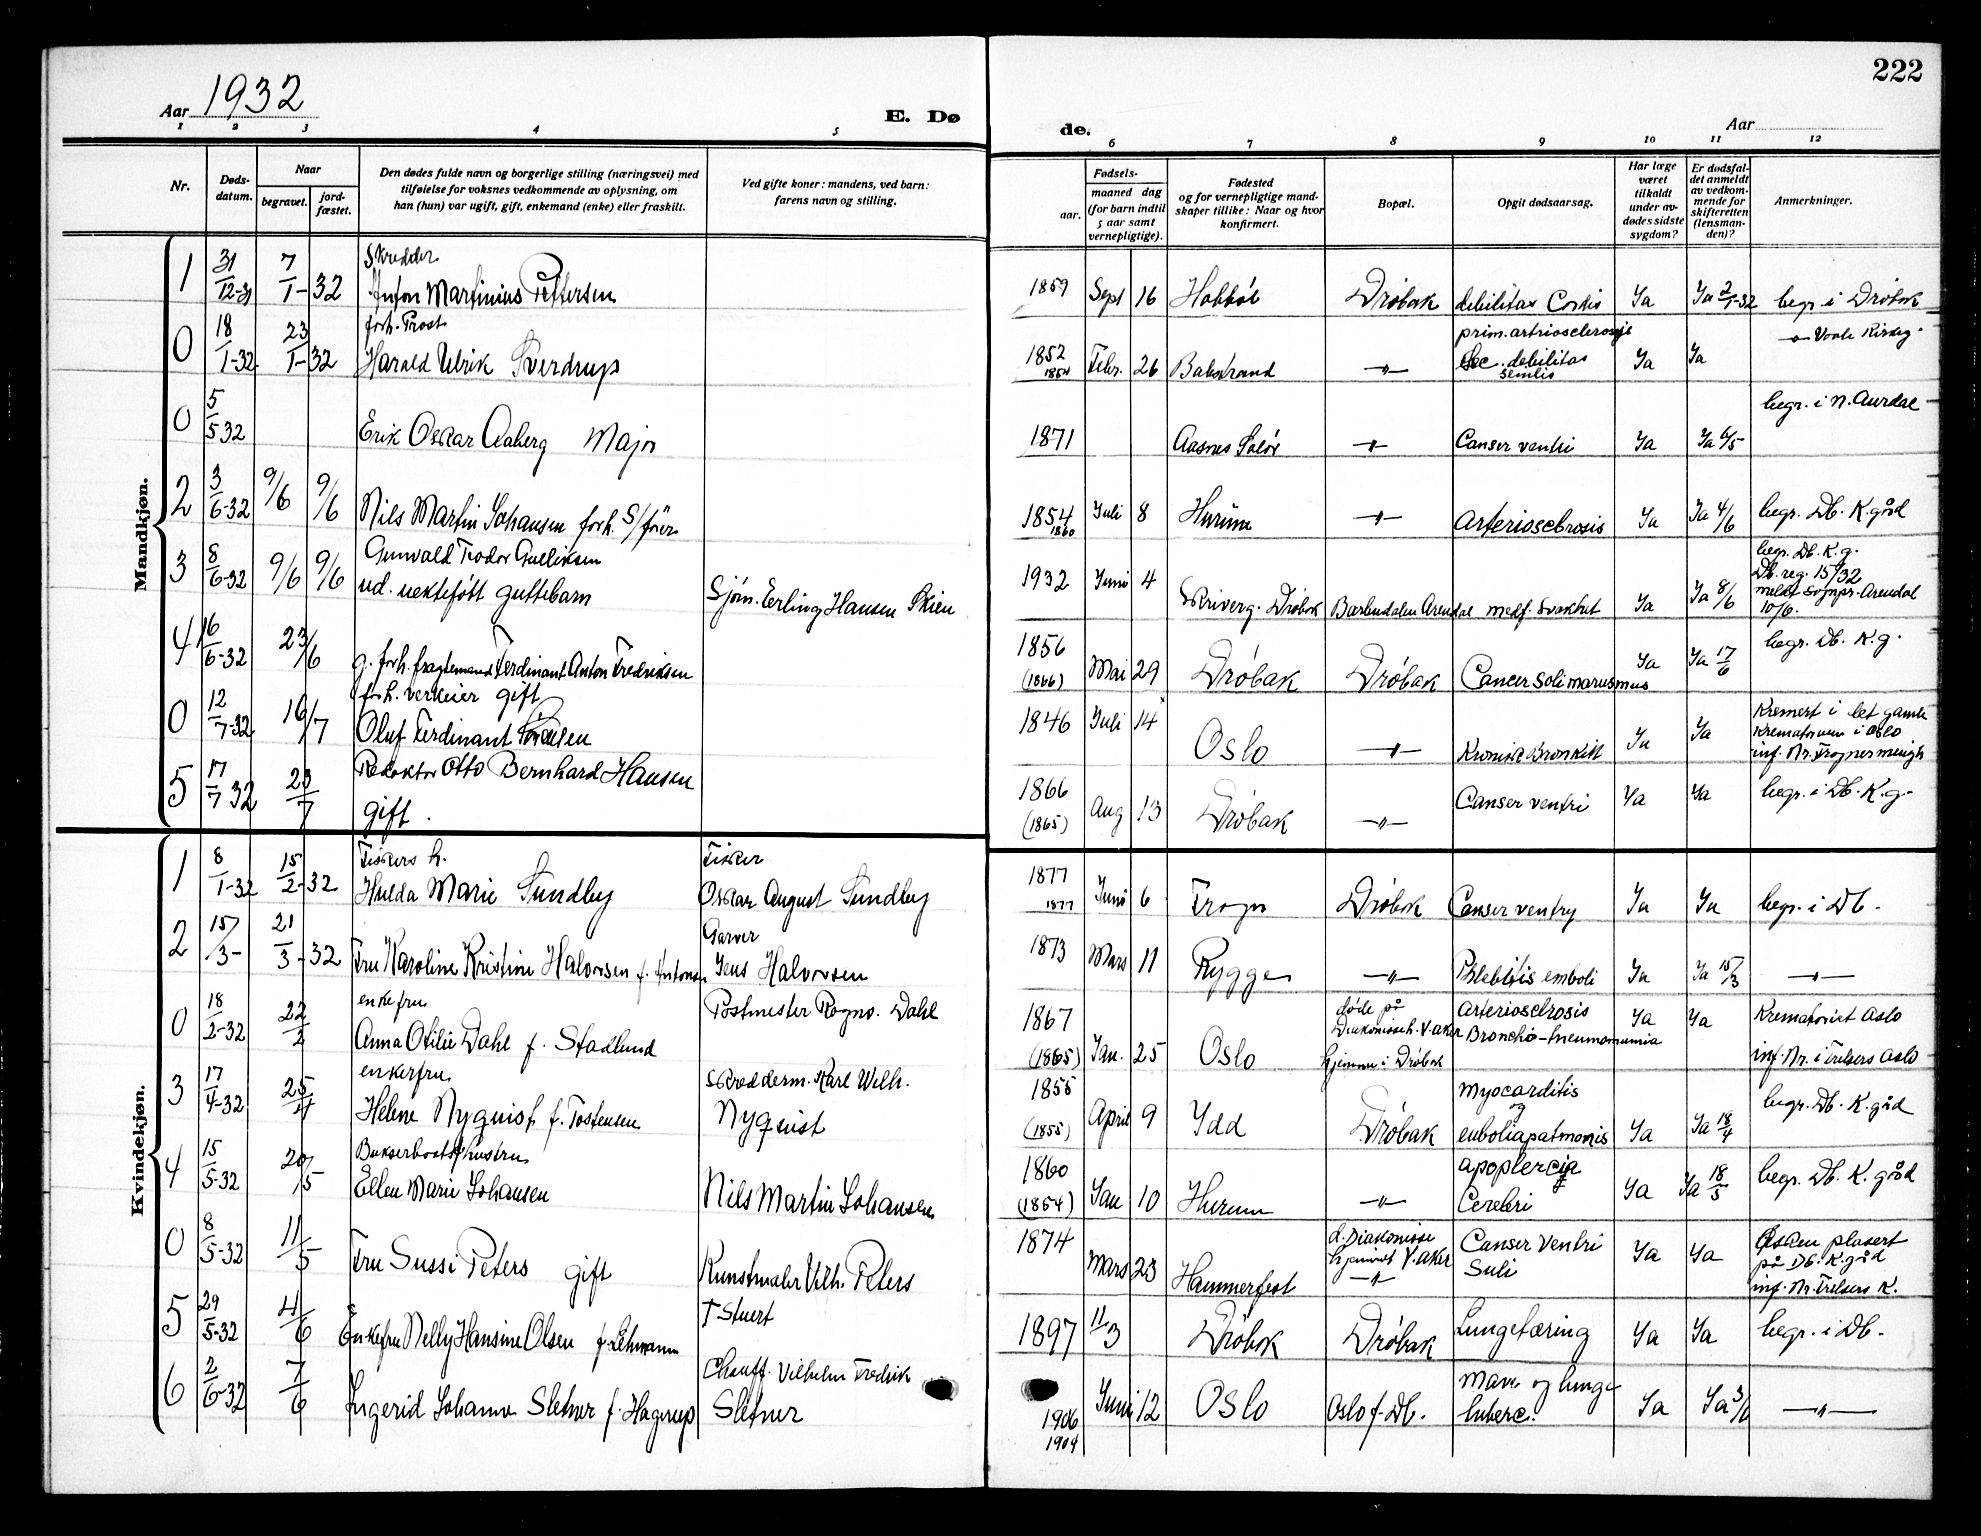 222
Aar 1932
E. Dø
de.
Aar
1 2 3 4 5
6 7 8 9 10 11 12
Nr.
Døds-
datum.
Naar
begravet.
jord-
fæstet.
Den dødes fulde navn og borgerlige stilling (næringsvei) med
tilføielse for voksnes vedkommende av oplysning, om
han (hun) var ugift, gift, enkemand (enke) eller fraskilt.
Ved gifte koner: mandens, ved barn:
farens navn og stilling.
Fødsels-
aar.
maaned dag
(for barn indtil
5 aar samt
vernepligtige).
Fødested
og for vernepligtige mand-
skaper tillike: Naar og hvor
konfirmert.
Bopæl.
Opgit dødsaarsag.
Har læge
været
tilkaldt
under av-
dødes sidste
sygdom?
Er dødsfal-
det anmeldt
av vedkom-
mende for
skifteretten
(lensman-
den)?
Anmerkninger.
Mandkjøn.
1 31/12-31 7/1-32 Skredder
Anton Martinius Pettersen
1859 Sept 16 Hobbøl Drøbak debilitas Cordis Ja Ja 2/1-32 begr. i Drøbak
0 18/1-32 23/1-32 forh. Prost
Harald Ulrik Sverdrup
1852 1854 Febr. 26 Balestrand -"- prim. artriosclerosis
Sec. debilitas
senilis Ja Ja
0 5/5 32 Erik Oskar Aaberg Major
1871 Aasnes Solør -"- Canser ventri Ja Ja 6/5 begr. i N. Aurdal
2 3/6-32 9/6 9/6 Nils Martin Johansen forh. S/fører
1854 1860 Juli 8 Hurum -"- Arteriosclrosis Ja Ja 4/6 begr. Db. K.gård
3 8/6-32 9/6 9/6 Gunvald Teodor Gulliksen
ud. uekteføtt guttebarn
Sjøm. Erling Hansen Skien
1932 Juni 4 Skriverg. Drøbak Barbudalen Arendal medf. svakhet Ja Ja 8/6 begr. Db. K.g.
Db. reg. 15/32
meldt Sognpr. Arendal
10/6.
4 16/6-32 23/6 g. forh. fragtemand Ferdinant Anton Fredriksen
1856 (1866) Mai 29 Drøbak Drøbak Ja Ja 17/6 begr. Db. K.g.
0 12/7-32 16/7 forh. verkeier gift
Oluf Ferdinant
1846 Juli 14 Oslo -"- Kronisk Bronkitt Ja Ja Kremert i det gamle
Krematorium i Oslo
inf. Nr. Frogner menigh
5 17/7 32 23/7 Redaktør Otto Bernhard Hansen
gift.
1866 (1865) Aug 13 Drøbak -"- Canser ventri Ja Ja begr. i Db. K.g.
Kvindekjøn.
1 8/1-32 15/2-32 Fiskers h.
Hulda Marie Sundby
Fisker
Oskar August Sundby
1877 1877 Juni 6 Frogn Drøbak Canser ventry Ja Ja begr. i Db.
2 15/3- 21/3-32 Fru Karoline Kristine Halvorsen f. Antonsen
Garver
Jens Halvorsen
1873 Mars 11 Rygge -"- Phlebitis emboli Ja Ja 15/3 -"-
0 18/2-32 22/2 enkefru
Anna Otilie Dahl f. Stadlund
Postmester Ragnv. Dahl
1867 (1865) Jan. 25 Oslo døde på
Diakonisseh. V. aker
hjemme i Drøbak
Arteriosclrosis
Broncho-Pneumomumia Ja Ja Krematoriet Oslo
inf. Nr. i Frelsers Oslo
3 17/4-32 25/4 enkerfru
Helene Nyquist f. Tostensen
Skredderm. Karl Wilh.
Nyquist
1855 (1855) April 9 Idd Drøbak Myocarditis
og
Ja Ja 18/4 begr. Db. K.gård
4 15/5-32 20/5 Ellen Marie Johansen
Nils Martin Johansen
1860 (1854) Jan 10 Hurum -"- apoplercia
Cerebri Ja Ja 18/5 begr. Db. K.gård
0 8/5-32 11/5 Fru Sussi Peters gift
Kunstmaler Vilh. Peters
1874 Mars 23 Hammerfest d. Diakonisse
hjemmet V. aker
-"- Canser Ventri
Suli Ja Ja Asken plasert
på Db. K.gård
inf. Nr. Frelsers K.
5 29/5-32 4/6 Enkefru Nelly Hansine Olsen f. Lehmann
Stuert
1897 11/3 Drøbak Drøbak Lungetæring Ja Ja begr. i Db.
6 2/6-32 7/6 Ingerid Johanne Sletner f. Hagerup
Chauff. Vilhelm Fredrik
Sletner
1906 1904 Juni 12 Oslo Oslo f. Db. Mave og lunge
tuberc. Ja Ja 3/6 -"-